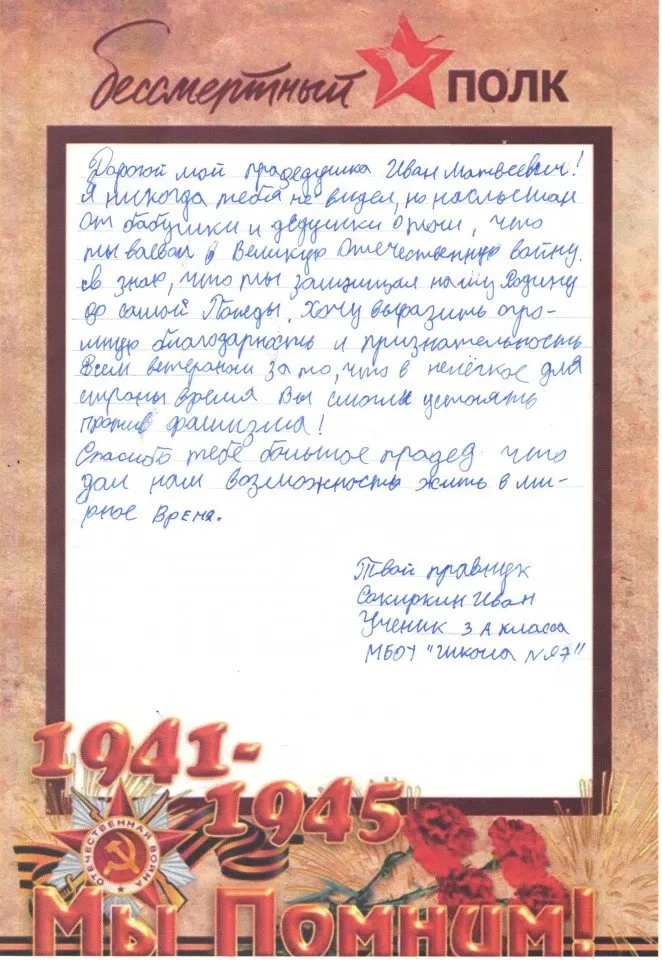 бессмертный ПОЛК
Дорогой мой прадедушка Иван Матвеевич!
Я никогда тебя не видел, но наслышан
от бабушки и дедушки о том, что
ты воевал в Великую Отечественную войну.
Я знаю, что ты защищал нашу Родину
до самой Победы. Хочу выразить огро-
мную благодарность и признательность
Всем ветеранам за то, что в нелёгкое для
страны время Вы смогли устоять
против фашизма!
Спасибо тебе большое прадед что
дал нам возможность жить в ми-
рное время.
Твой правнук
Сакиркин Иван
Ученик 3 А класса
МБОУ "Школа №97"
1941-
1945
ОТЕЧЕСТВЕННАЯ ВОЙНА
Мы Помним!